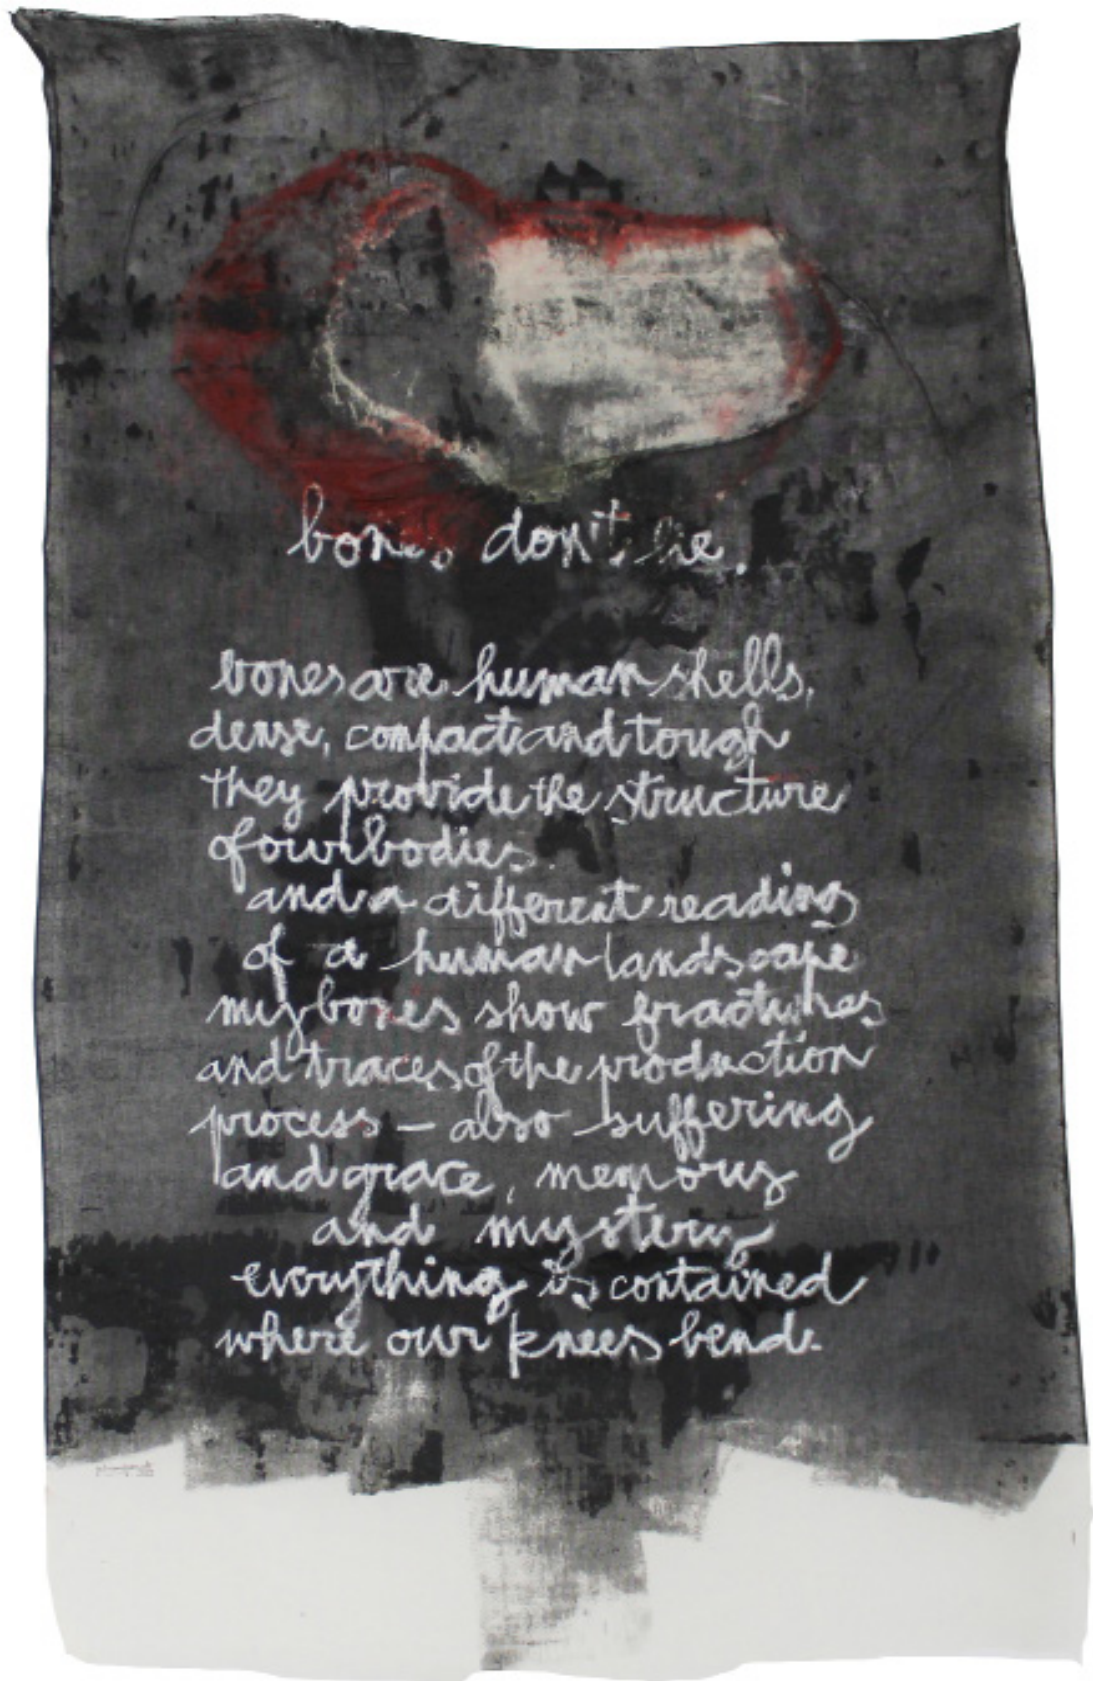 bones don't lie.
bones are human shells,
dense, compact and tough
they provide the structure
of our bodies.
and a different reading
of a human landscape
my bones show fractures
and traces of the production
process – also suffering
and grace, memory
and mystery
everything is contained
where our knees bend.